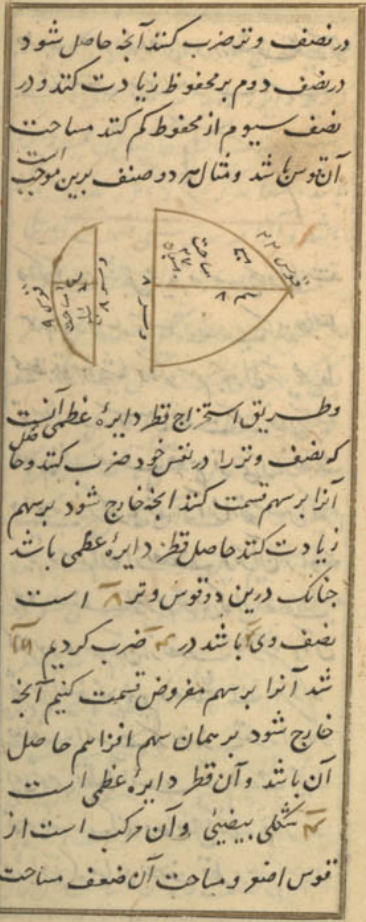 در نصف وتر ضرب کنند آنچه حاصل شود
در نصف دوم بر محفوظ زیادت کنند و در
نصف سیوم از محفوظ کم کنند مساحت
آن قوس باشد و مثال هر دو صنف برین موجب است
قوس ۲۲
مساحت
سهم ۸
وتر ۸
وتر ۸
مساحت
قوس
وطریق استخراج قطر دایرهٔ عظمی آنست
که نصف وتر را در نفس خود ضرب کنند و حاصل
آنرا بر سهم قسمت کنند آنچه خارج شود بر سهم
زیادت کنند حاصل قطر دایرهٔ عظمی باشد
چنانک درین دو قوس وتر ۸ است
نصف وی ۴ باشد در ۴ ضرب کردیم
شد آنرا بر سهم مفروض قسمت کنیم آنچه
خارج شود بر همان سهم افزاییم حاصل
آن باشد و آن قطر دایرهٔ عظمی است
شکلی بیضیئی و آن مرکب است از
قوس اصغر و مساحت آن ضعف مساحت